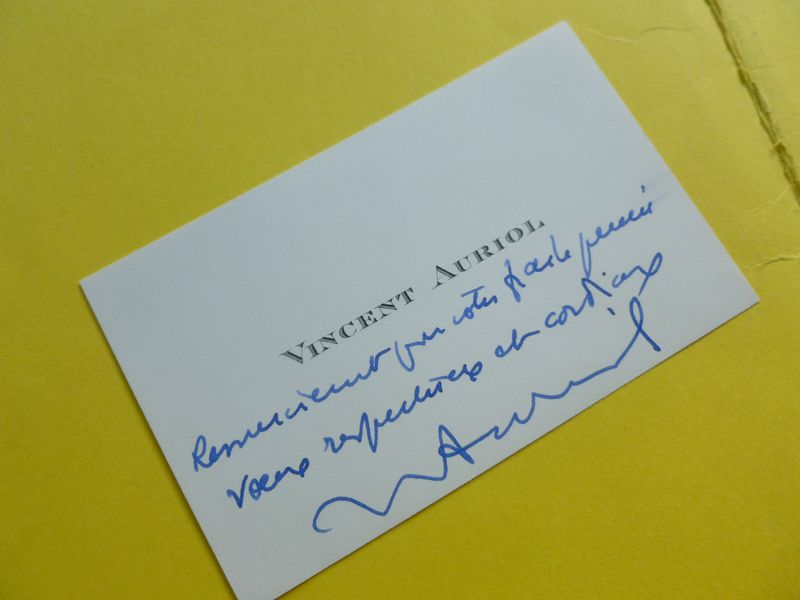 VINCENT AURIOL
Remerciements pour votre fidèle pensée
Voeux respectueux et cordiaux
V Auriol